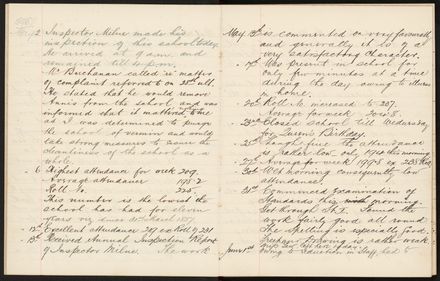 2 Inspector Milne made his
inspection of this school today.
He arrived at 9 am. and
remained till 4 p.m.
Mr Buchanan called re matter
of complaint referred to on 28th ult.
He stated that he would remove
Annis from the school and was
informed that it mattered to me
as I was determined to purge
the school of vermin and would
take strong measures to secure the
cleanliness of the school as a
whole.
6 Highest attendance for week 209.
Average attendance 198.2
Roll No. 225.
This number is the lowest the
school has had for eleven
years viz since March 1887.
12th Excellent attendance 207 ex Roll of 231
13th Received Annual Inspection Report
of Inspector Milne. The work
May is commented on very favourably
and generally it is of a
very satisfactory character.
17th Was present in school for
only few minutes at a time
during the day owing to illness
in house.
20th Roll No. increased to 237.
Average for week
23rd Closed school till Wednesday
for Queen's Birthday.
25th Though fine the attendance
is rather low only 190 this morning
27th Average for week 199.5 ex 238 Roll
30th Wet morning consequently low
attendance.
31st Commenced Examination of
Standards this morning.
Got through St 1. Found the
work fairly good all round.
The Spelling is especially good.
Freehand Drawing is rather weak.
June 1st Owing to reduction in Staff, had to